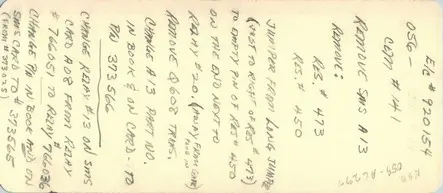 E/C # 920154
056-
COM # 141
REMOVE SMS A13
REMOVE:
RES. # 473
RES. # 450
JUMPER FROM LONG JUMPER
(JUST TO RIGHT OF RES # 473)
TO EMPTY PIN OF RES # 450
ON THE END NEXT TO
RELAY #20. (RELAY FROM CARD
REMOVE Q608 TRANS.
CHANGE A13 PART NO.
IN BOOK & ON CARD - TO
PN 373566
CHANGE RELAY #13 ON SMS
CARD A08 FROM RELAY
# 766051 TO RELAY # 766036
CHANGE PN IN BOOK AND ON
SMS CARD TO # 373565
(FROM # 373025)